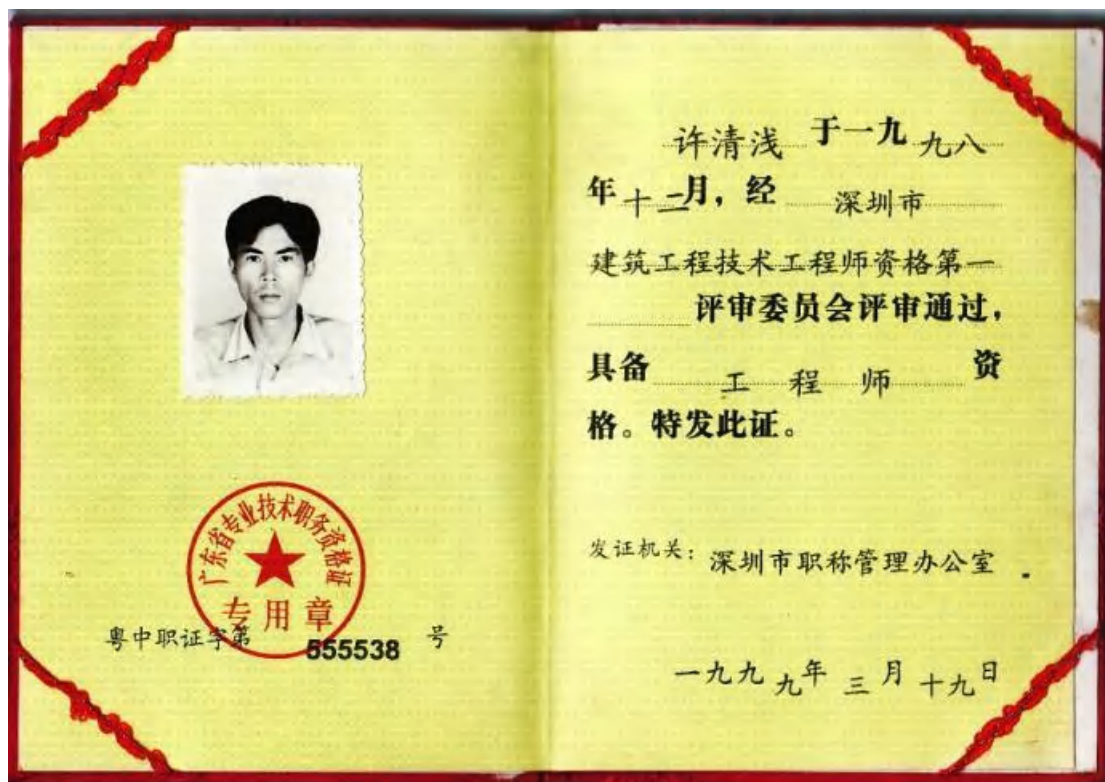 广东省专业技术职务资格证
专用章
粤中职证字第 555538 号
许清浅 于一九 九八
年 十二 月，经 深圳市
建筑工程技术工程师资格第一
评审委员会评审通过，
具备 工程师 资
格。特发此证。
发证机关：深圳市职称管理办公室
一九九九年三月十九日